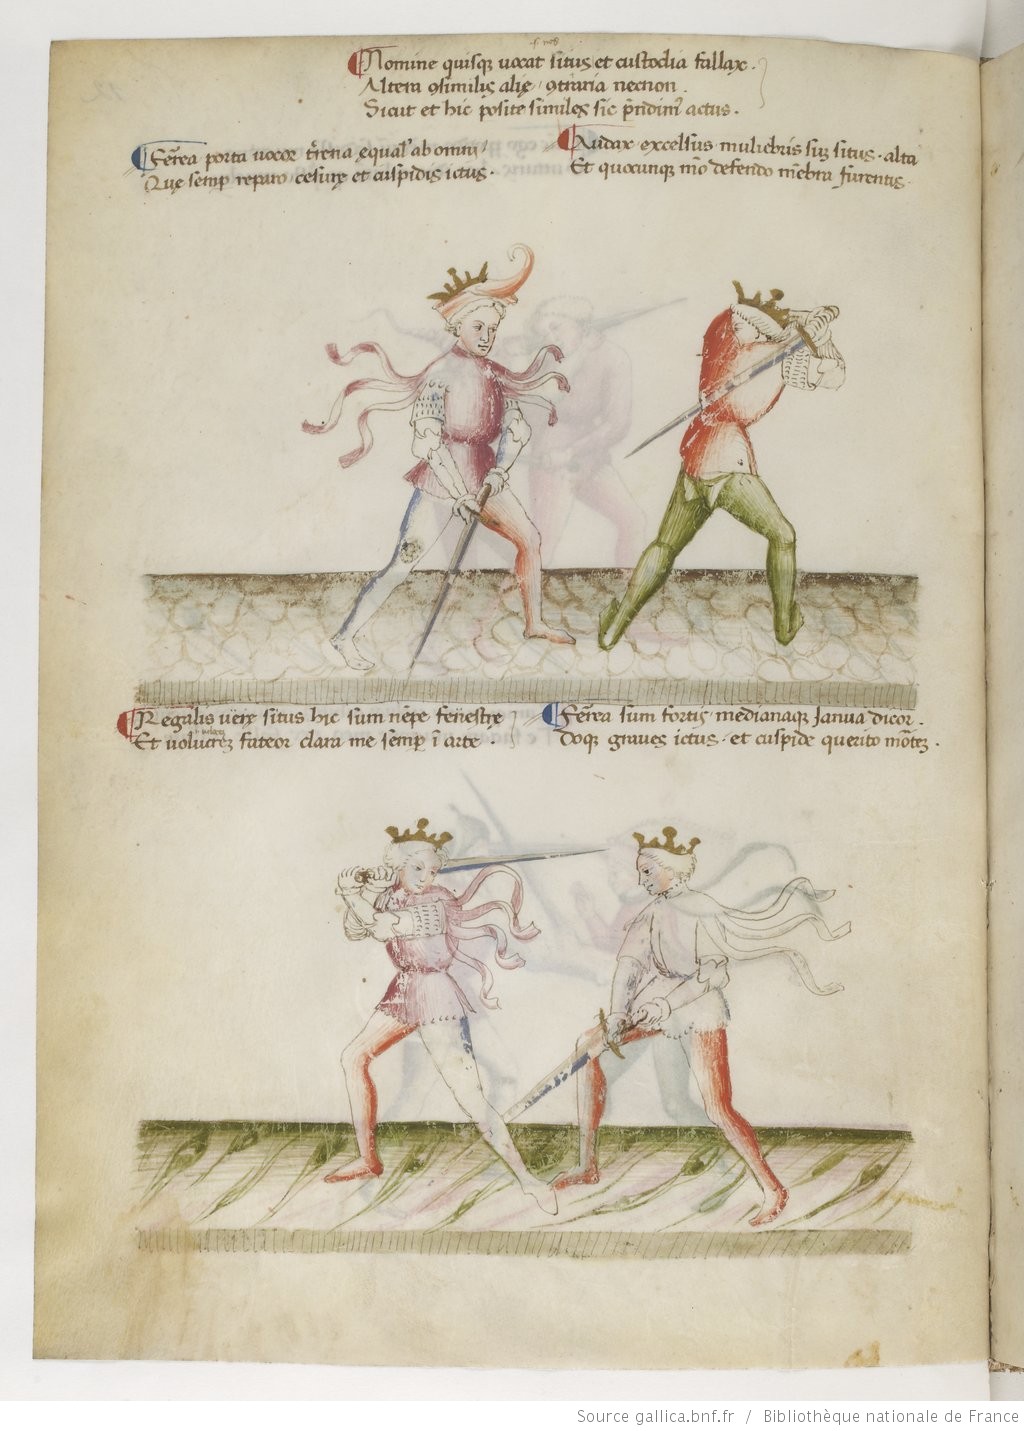 .s. nos
Nomine quisq̨ uocat situs et custodia fallax .
Altera 9similis alię 9traria necnon .
Sicut et hic posite similes sic p̄ndim᷒ actus .
Fērea porta uocor t̄rena equal᷒ ab omni
Quę semp̄ reparo cesurę et cuspidis ictus .
Audax excelsus muliebris suꝫ situs . alta
Et quocunq̨ mō defendo mēbra furentis .
Regalis uerę situs hic sum nēpe fenestrę
Et uolucreꝫ fateor clara me semp̄ ī arte .
Fērea sum fortis medianaq̨ Janua dicor .
Doq̨ graues ictus . et cuspide querito mōteꝫ .
Source gallica.bnf.fr / Bibliothèque nationale de France